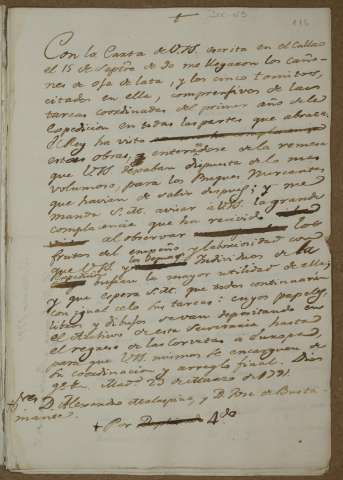 116
Con la Carta de V.M. escrita en el Callao
el 15 de Septre de 90 me llegaron los caño-
nes de oja de lata, y los cinco tomitos,
citados en ella, comprensivos de las
tareas coordinadas del primer año de la
Expedicion en todas las partes que abraza.
El Rey ha visto
estas obras, enterandose de la remesa
que V.M. dexaban dispuesta de lo mas
voluminoso, para los Buques Mercantes
que havian de salir despues; y me
manda S.M. avisar à V.M. la grande
complacencia que ha recivido
al observar los
frutos del empeño y laboriosidad con
que V.M. y los Individuos de la
buscan la mayor utilidad de ella;
y que espera S.M. que todos continuarán
con igual celo sus tareas: cuyos papeles,
libros y dibujos se van depositando en
el Archivo de esta Secretaria hasta
el regreso de las Corvetas a Europa,
para que V.M. mismos se encarguen de
su coordinacion y arreglo final. Dios
gue. Madd 29 de Marzo de 1791.
Sres D. Alexandro Malaspina, y D. Jose de Busta-
mante.
+ Por Duplicado 4do